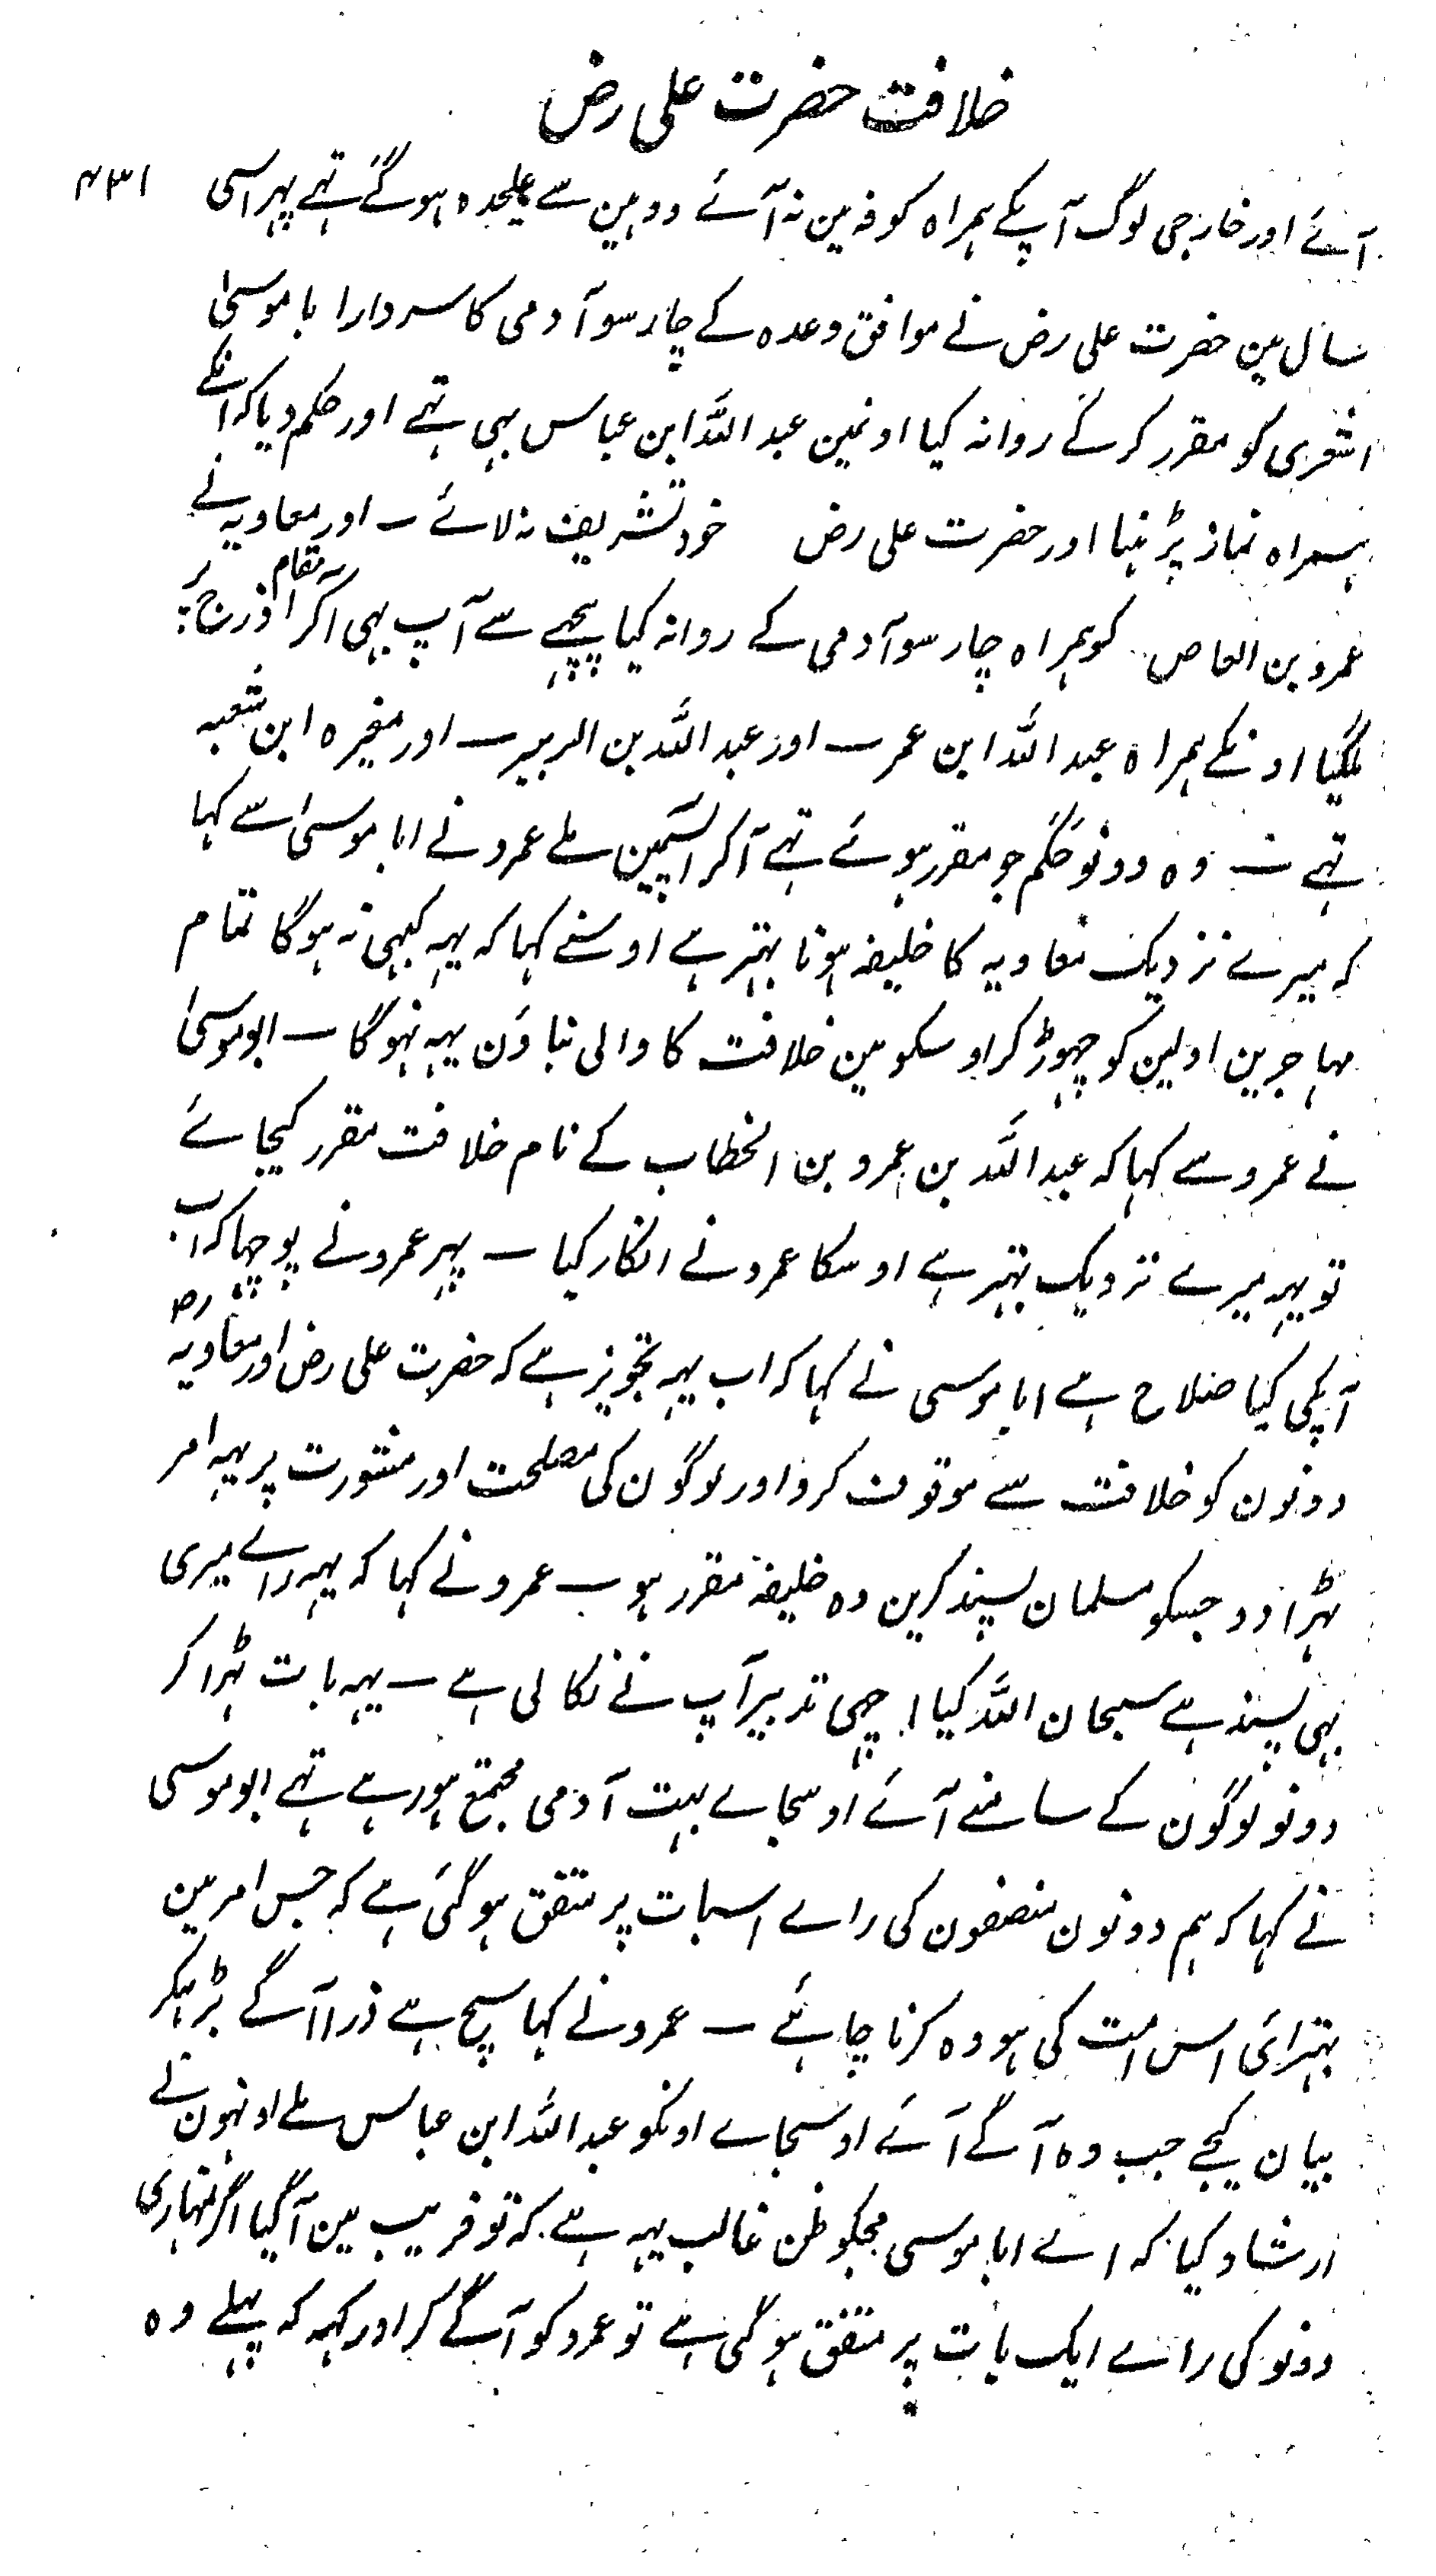 خلافت حضرت علی رض
۴۳۱
آئے اور خارجی لوگ آپکے ہمراہ کوفہ مین نہ آئے دوہین سے علیحدہ ہوگئے تہے پہر اسی
سال مین حضرت علی رض نے موافق وعدہ کے چار سو آدمی کا سردار ابا موسیٰ
اشعری کو مقرر کرکے روانہ کیا اونمین عبد اللہ ابن عباس بہی تہے اور حکم دیا کہ انکے
ہمراہ نماز پڑہنا اور حضرت علی رض خود تشریف نہ لائے ۔ اور معاویہ نے
عمرو بن العاص کو ہمراہ چار سو آدمی کے روانہ کیا پیچہے سے آپ بہی آکر بہ مقام اذرح پر
ملگیا اونکے ہمراہ عبد اللہ ابن عمر ۔ اور عبد اللہ بن الزبیر ۔ اور مغیرہ ابن شعبہ
تہے ۔ وہ دونو حَکَم جو مقرر ہوئے تہے آکر آپسمین ملے عمرو نے ابا موسیٰ سے کہا
کہ میرے نزدیک معاویہ کا خلیفہ ہونا بہتر ہے اوسنے کہا کہ یہہ کبہی نہ ہوگا تمام
مہاجرین اولین کو چہوڑ کر اوسکو مین خلافت کا والی بناؤن یہہ نہوگا ۔ ابو موسیٰ
نے عمرو سے کہا کہ عبد اللہ بن عمرو بن الخطاب کے نام خلافت مقرر کیجائے
تو یہہ میرے نزدیک بہتر ہے اوسکا عمرو نے انکار کیا ۔ پہر عمرو نے پوچہا کہ اب
آپکی کیا صلاح ہے ابا موسی نے کہا کہ اب یہہ تجویز ہے کہ حضرت علی رض اور معاویہ رض
دونون کو خلافت سے موقوف کرو اور لوگون کی مصلحت اور مشورت پر یہہ امر
ٹہرا دو جسکو مسلمان پسند کرین وہ خلیفہ مقرر ہو ۔ عمرو نے کہا کہ یہہ راے میری
بہی پسند ہے سبحان اللہ کیا اچہی تدبیر آپ نے نکالی ہے ۔ یہہ بات ٹہرا کر
دونو لوگون کے سامنے آئے اوسجاے بہت آدمی مجتمع ہو رہے تہے ابو موسی
نے کہا کہ ہم دونون منصفون کی راے اسبات پر متفق ہو گئی ہے کہ جس امر مین
بہترائی اس امت کی ہو وہ کرنا چاہئے ۔ عمرو نے کہا سچ ہے ذرا آگے بڑہکر
بیان کیجے جب وہ آگے آئے اوسجاے اونکو عبد اللہ ابن عباس ملے اونہون نے
ارشاد کیا کہ اے ابا موسی مجکو ظن غالب یہہ ہے کہ تو فریب مین آگیا اگر تمہاری
دونو کی راے ایک بات پر متفق ہو گئی ہے تو عمرو کو آگے کر اور کہہ کہ پہلے وہ